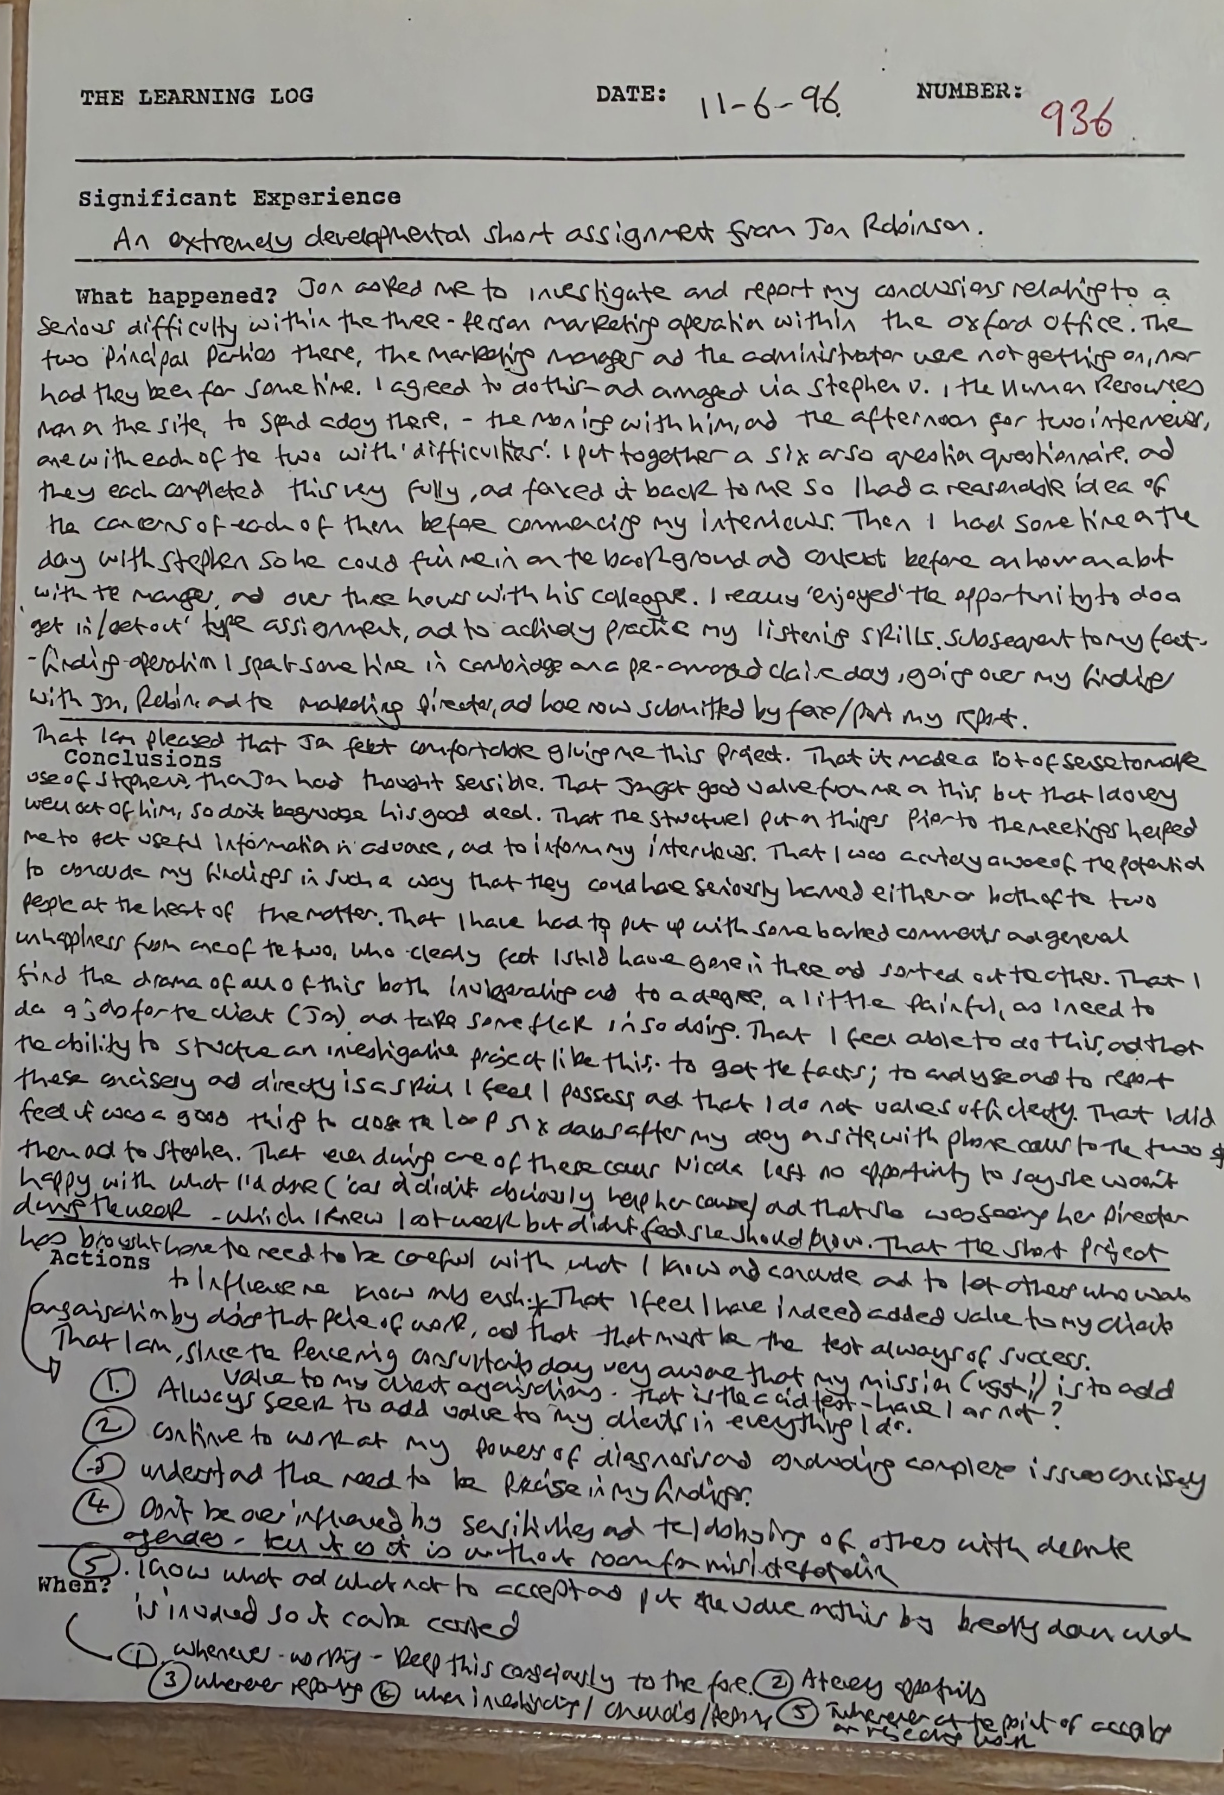 THE LEARNING LOG DATE: 11-6-96. NUMBER: 936
Significant Experience
An extremely developmental short assignment from Jon Robinson.
What happened? Jon asked me to investigate and report my conclusions relating to a
serious difficulty within the three-person marketing operation within the Oxford Office. The
two principal parties there, the marketing manager ad the administrator were not getting on, nor
had they been for some time. I agreed to do this - ad arranged via Stephen V., the Human Resources
man on the site, to spend a day there, - the morning with him, ad the afternoon for two interviews,
one with each of the two with 'difficulties'. I put together a six or so question questionnaire, ad
they each completed this very fully, ad faxed it back to me so I had a reasonable idea of
the concerns of each of them before commencing my interviews. Then I had some time on the
day with Stephen so he could fill me in on the background ad context before an hour and a bit
with the manager, ad over three hours with his colleague. I really 'enjoyed' the opportunity to do a
'get in/get out' type assignment, ad to actively practice my listening skills. Subsequent to my fact-
-finding operation I spent some time in Cambridge on a pre-arranged day, going over my findings
with Jon, Robin, ad the Marketing Director, ad have now submitted by fax/post my report.
That I am pleased that Jon felt comfortable giving me this project. That it made a lot of sense to make
Conclusions
use of Stephen, than Jon had thought sensible. That Jon got good value from me on this, but that I do very
well out of him, so don't begrudge his good deal. That the structure I put on things prior to the meetings helped
me to get useful information in advance, ad to inform my interviews. That I was acutely aware of the potential
to conclude my findings in such a way that they could have seriously harmed either or both of the two
people at the heart of the matter. That I have had to put up with some barbed comments ad general
unhappiness from one of the two, who clearly feel I should have gone in there ad sorted out the other. That I
find the drama of all of this both invigorating ad to a degree, a little painful, as I need to
do a job for the client (Jon) ad take some flak in so doing. That I feel able to do this, ad that
the ability to structure an investigative project like this: to get the facts; to analyse ad to report
these concisely ad directly is a skill I feel I possess ad that I do not value sufficiently. That I did
feel it was a good thing to close the loop six days after my day on site, with phone calls to the two of
them ad to Stephen. That even during one of these calls Nicola left no opportunity to say she wasn't
happy with what I'd done ('cos it didn't obviously help her cause) ad that she was seeing her Director
during the week - which I knew last week but didn't feel she should know. That the short project
has brought home the need to be careful with what I know ad conclude ad to let others who wish
Actions
to influence me know only so.
That I feel I have indeed added value to my client
organisation by doing that piece of work, ad that that must be the test always of success.
That I am, since the consultants day very aware that my mission (uggh!) is to add
value to my client organisations. That is the acid test - have I or not?
1. Always seek to add value to my clients in everything I do.
2 Continue to work at my powers of diagnosis ad concluding complex issues concisely
3 Understand the need to be precise in my findings.
4 Don't be over influenced by sensitivities ad the lobbying of others with definite
agendas - tell it as it is without room for misinterpretation
5. Know what ad what not to accept ad put the value on this by breaking down what
When?
is involved so it can be costed
1. Whenever working - keep this consciously to the fore. 2 At every opportunity
3 Whenever reporting 4 When investigating/ / 5 Whenever at the point of
or work